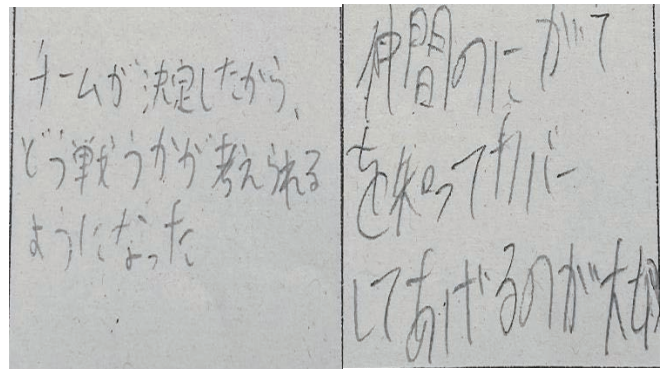 チームが決定したから、
どう戦うかが考えられる
ようになった
仲間のにがて
を知ってカバー
してあげるのが大切